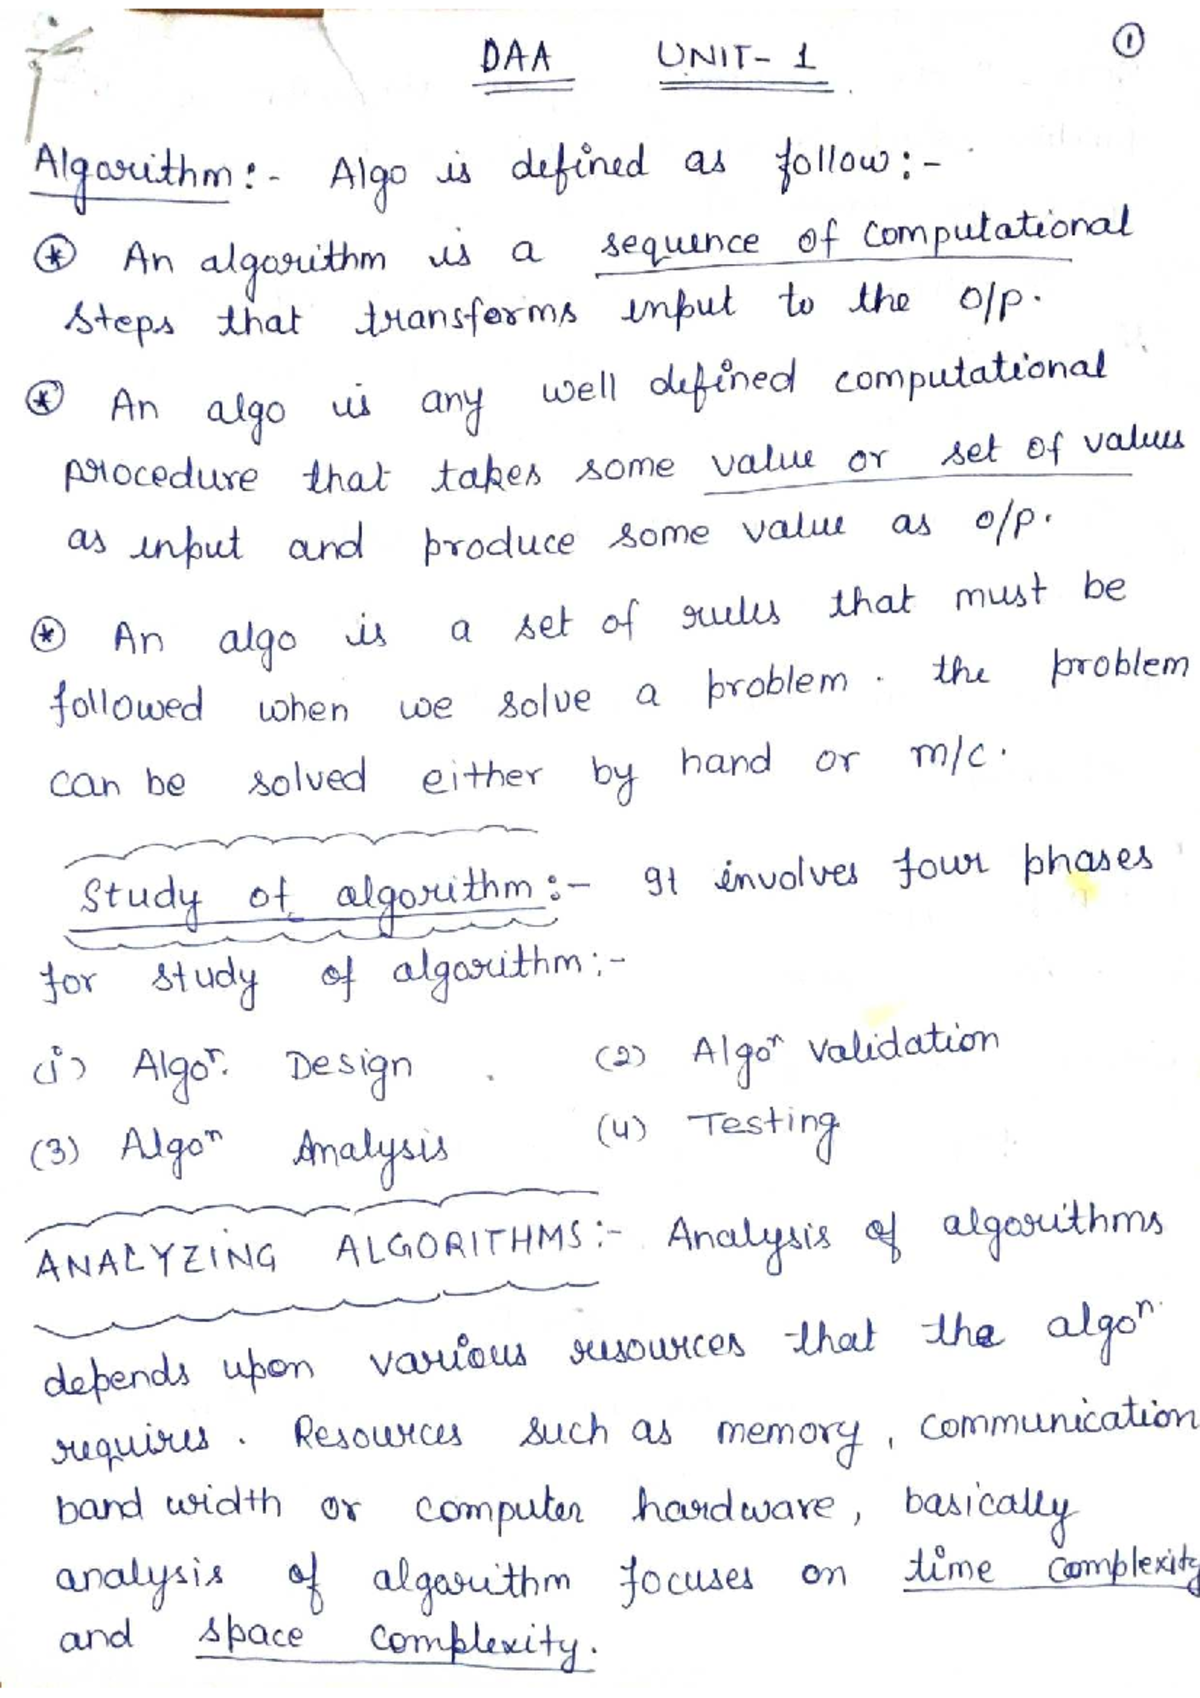 DAA UNIT- 1
①
Algorithm:- Algo is defined as follow:-
⊛ An algorithm is a sequence of computational
steps that transforms input to the o/p.
⊛ An algo is any well defined computational
procedure that takes some value or set of values
as input and produce some value as o/p.
⊛ An algo is a set of rules that must be
followed when we solve a problem. the problem
can be solved either by hand or m/c.
Study of algorithm:- It involves four phases
for study of algorithm:-
(i) Algoⁿ. Design (2) Algoⁿ validation
(3) Algoⁿ Analysis (4) Testing
ANALYZING ALGORITHMS:- Analysis of algorithms
depends upon various resources that the algoⁿ.
requires. Resources such as memory, communication
band width or computer hardware, basically
analysis of algorithm focuses on time complexity
and space complexity.